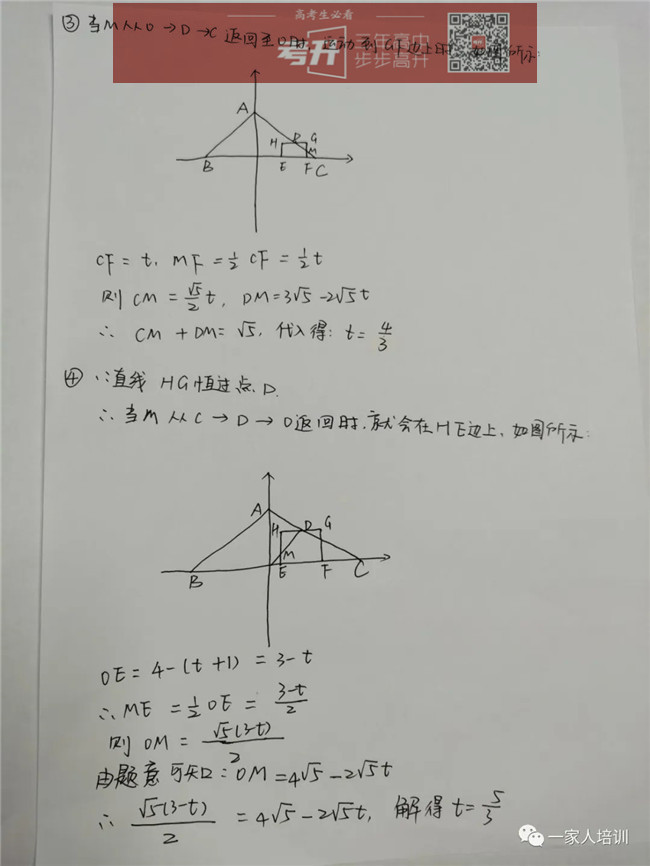 高考生必看
考升
三年高中
步步高升
③ 当M从O→D→C返回至O时,运动到GF边上时,如图所示:
A
H D G
M
B E F C
CF = t, MF = 1/2 CF = 1/2 t
则 CM = √5/2 t, DM = 3√5 - 2√5t
∴ CM + DM = √5, 代入得: t = 4/3
④ ∵直线 HG恒过点D.
∴ 当M从C→D→O返回时,就会在HE边上,如图所示:
A
H D G
M
B E F C
OE = 4-(t+1) = 3-t
∴ ME = 1/2 OE = (3-t)/2
则 OM = √5(3-t)/2
由题意可知: OM = 4√5 - 2√5t
∴ √5(3-t)/2 = 4√5 - 2√5t, 解得 t = 5/3
一家人培训